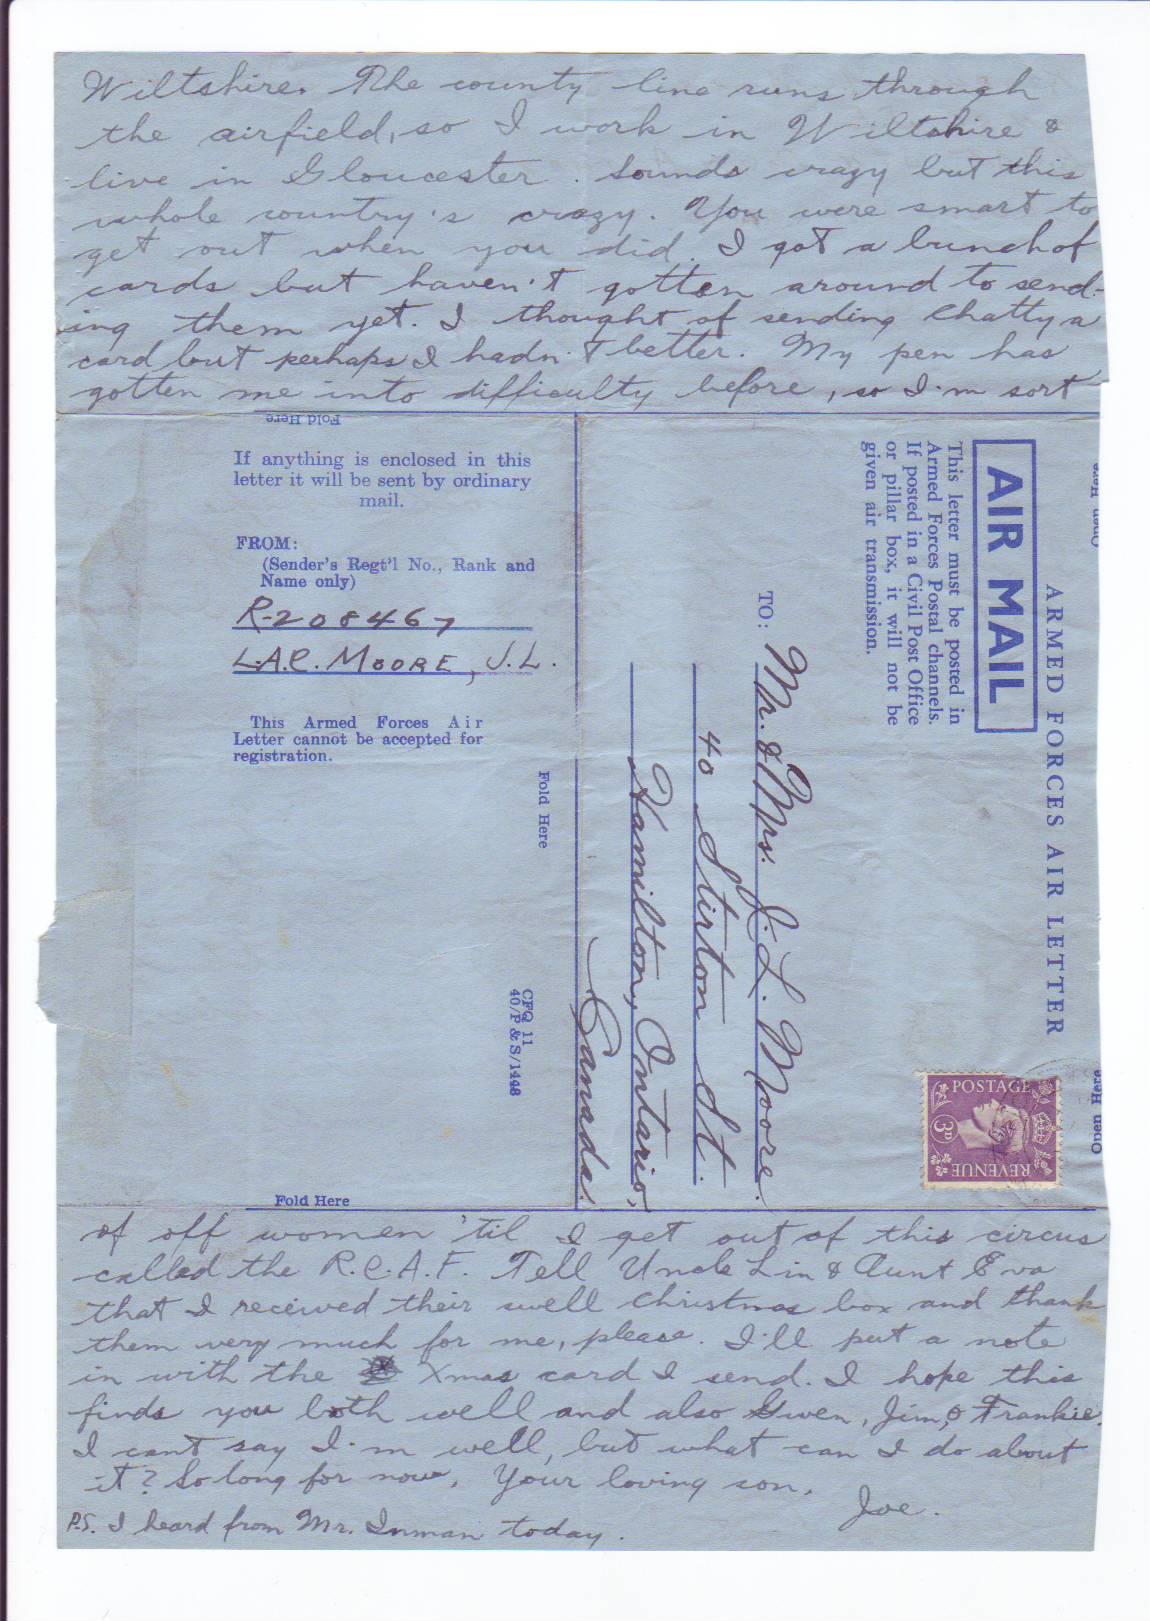 Wiltshire. The county line runs through
the airfield, so I work in Wiltshire &
live in Gloucester. Sounds crazy but this
whole country's crazy. You were smart to
get out when you did. I got a bunch of
cards but haven't gotten around to send-
ing them yet. I thought of sending Chatty a
card but perhaps I hadn't better. My pen has
gotten me into difficulty before, so I'm sort
Fold Here
If anything is enclosed in this
letter it will be sent by ordinary
mail.
FROM:
(Sender's Regt'l No., Rank and
Name only)
R-208467
L.A.C. MOORE, J.L.
This Armed Forces Air
Letter cannot be accepted for
registration.
Fold Here
CFQ 11
40/P & S/1448
Fold Here
Open Here
ARMED FORCES AIR LETTER
AIR MAIL
This letter must be posted in
Armed Forces Postal channels.
If posted in a Civil Post Office
or pillar box, it will not be
given air transmission.
TO: Mr. & Mrs. J. L. Moore.
40 Stirton St.
Hamilton, Ontario,
Canada.
POSTAGE
3D
REVENUE
Open Here
of off women 'til I get out of this circus
called the R.C.A.F. Tell Uncle Lin & Aunt Eva
that I received their swell Christmas box and thank
them very much for me, please. I'll put a note
in with the Xmas card I send. I hope this
finds you both well and also Gwen, Jim, & Frankie.
I can't say I'm well, but what can I do about
it? So long for now, Your loving son,
Joe.
P.S. I heard from Mr. Inman today.